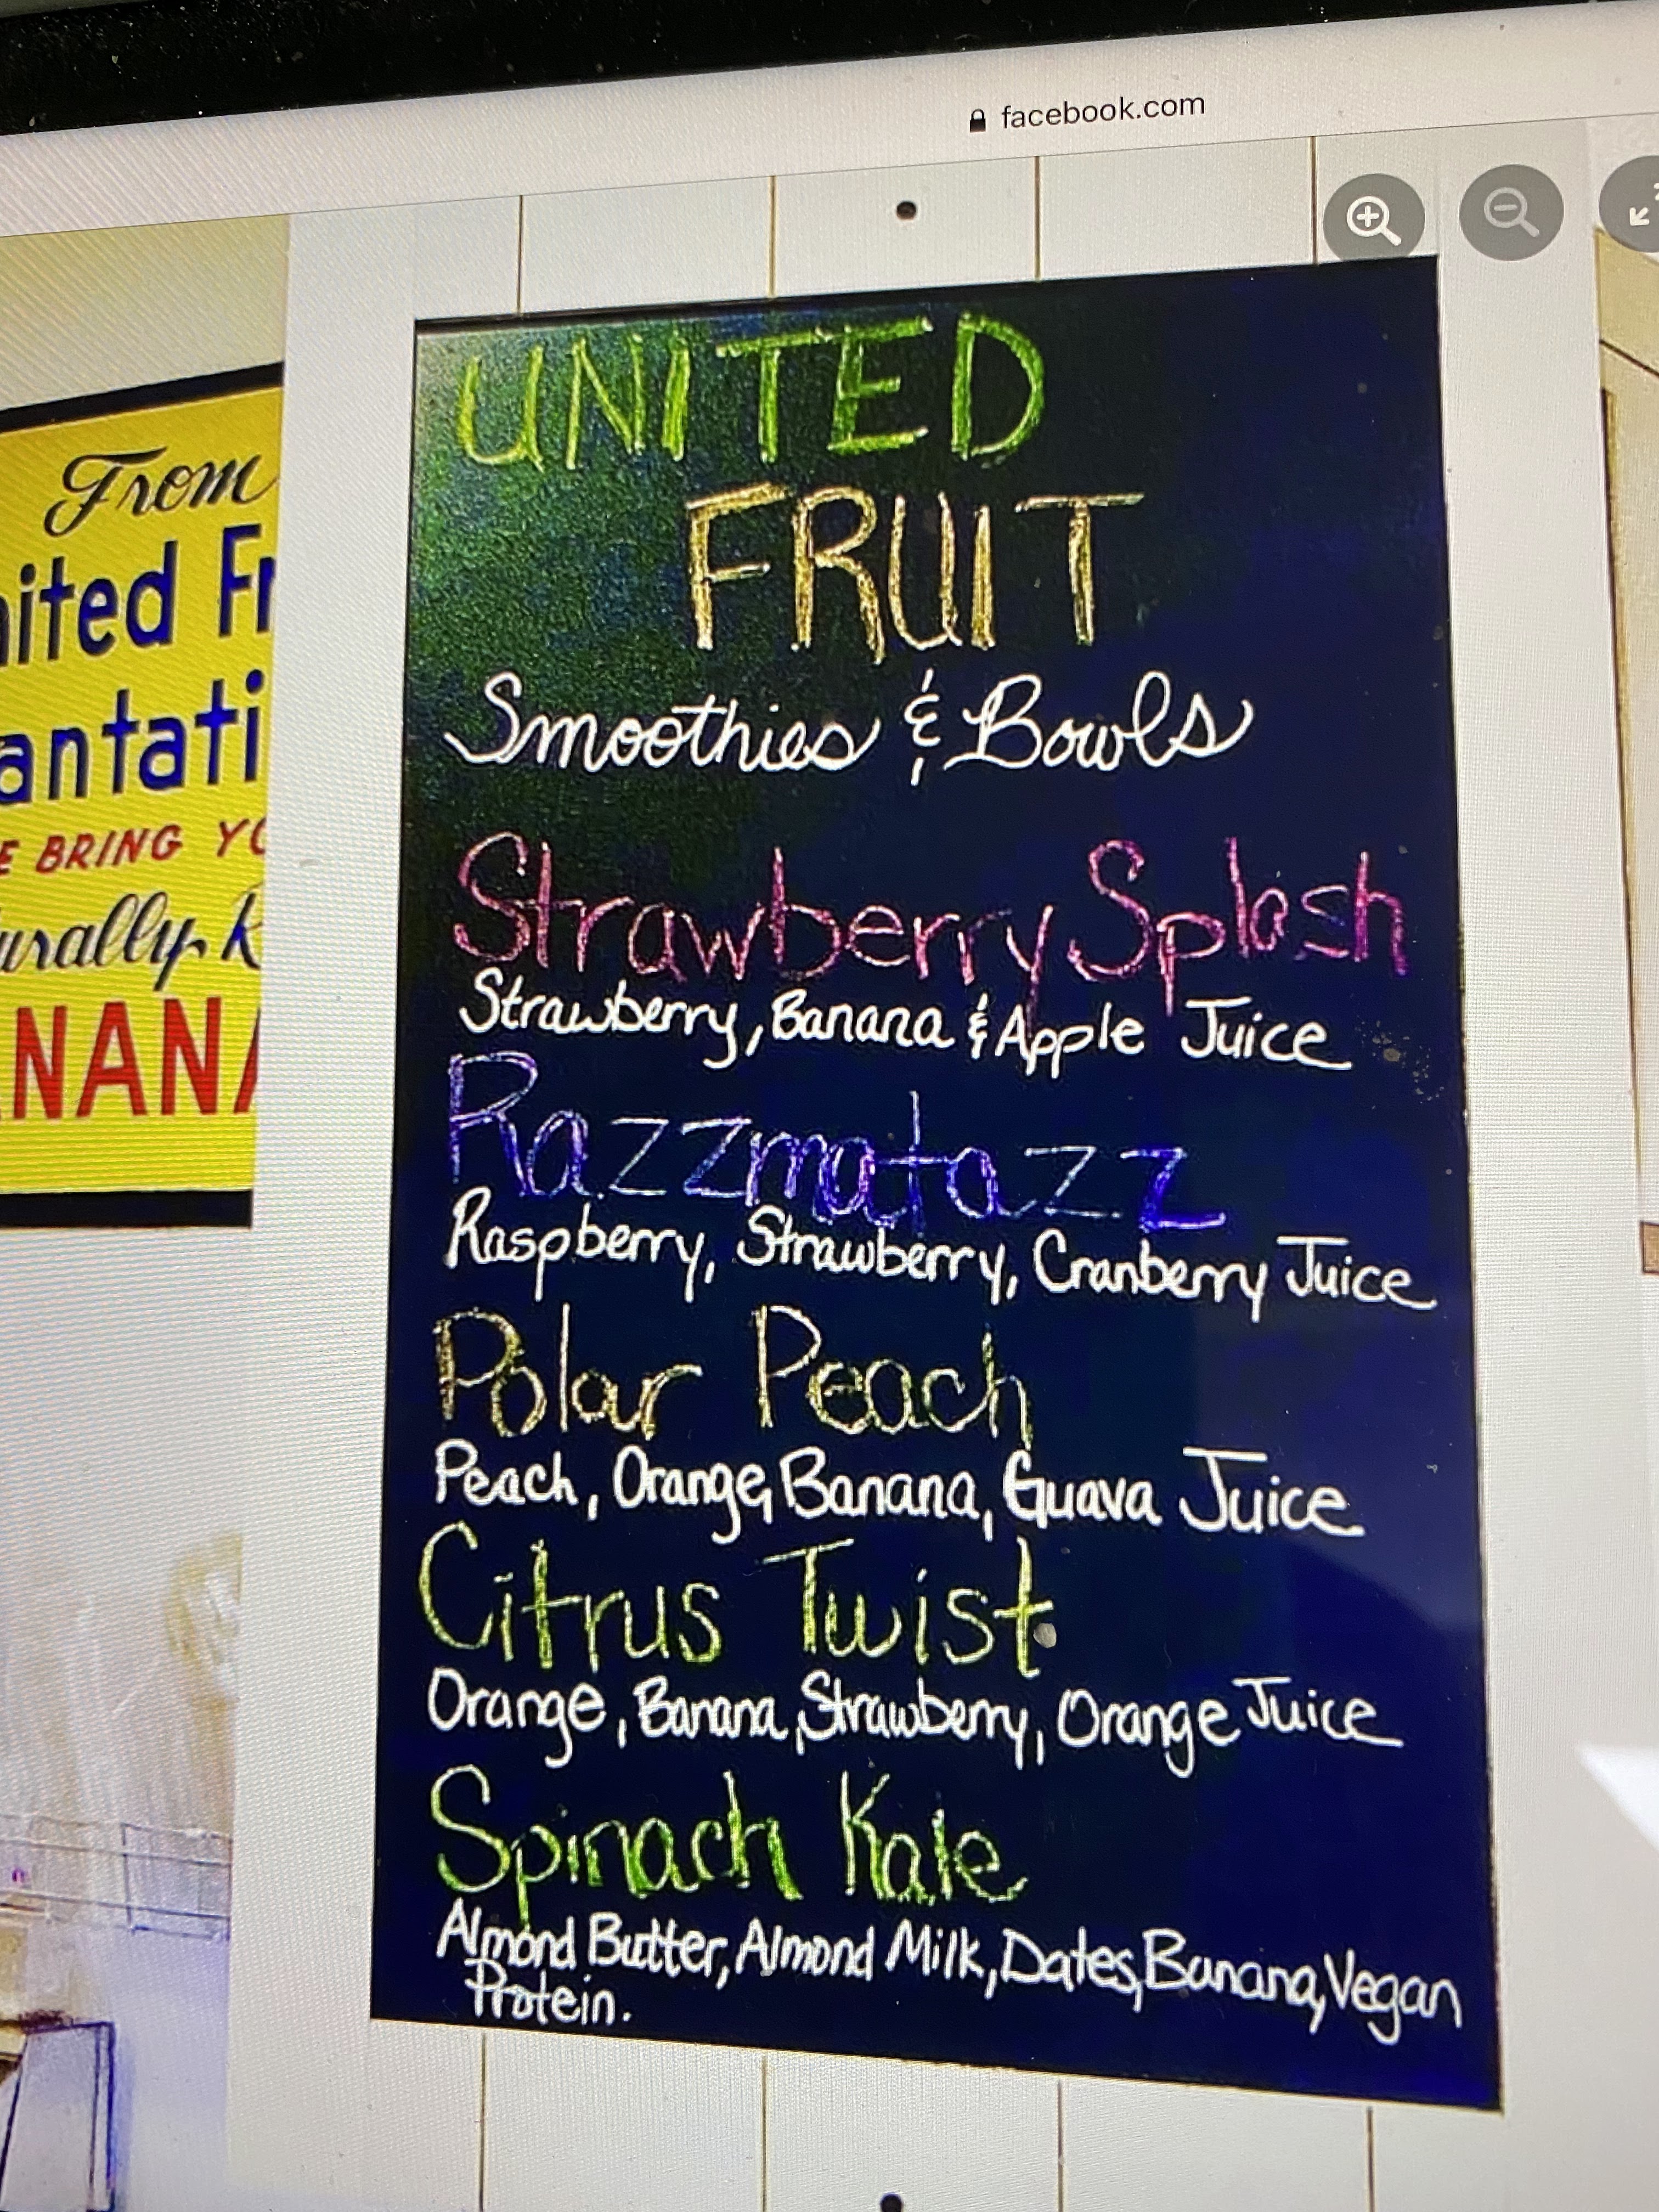 facebook.com
From
ited Fr
antati
E BRING YO
urally R
NANA
UNITED
FRUIT
Smoothies & Bowls
Strawberry Splash
Strawberry, Banana & Apple Juice
Razzmatazz
Raspberry, Strawberry, Cranberry Juice
Polar Peach
Peach, Orange, Banana, Guava Juice
Citrus Twist
Orange, Banana, Strawberry, Orange Juice
Spinach Kale
Almond Butter, Almond Milk, Dates, Banana, Vegan
Protein.